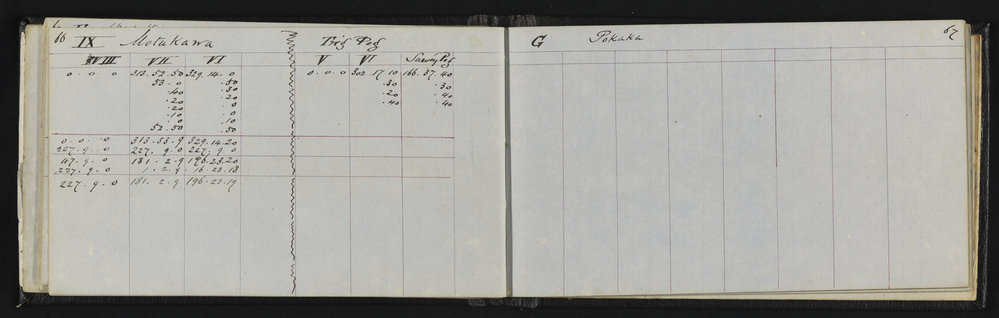 66 IX Motukawa Trig Peg
XVIII VII VI V VI Survey Peg
0.0.0 313.52.50 329.14.0 0.0.0 302.17.10 166.37.40
53.0 .50 .30 .30
.40 .30 .20 .40
.20 .20 .40 .40
.20 .0
.10 .0
.0 .10
52.50 .50
0.0.0 313.53.9 329.14.20
227.9.0 227.9.0 227.9.0
47.9.0 181.2.9 196.23.20
227.9.0 1.2.9 16.23.18
227.9.0 181.2.9 196.23.19
G Pokaka 67